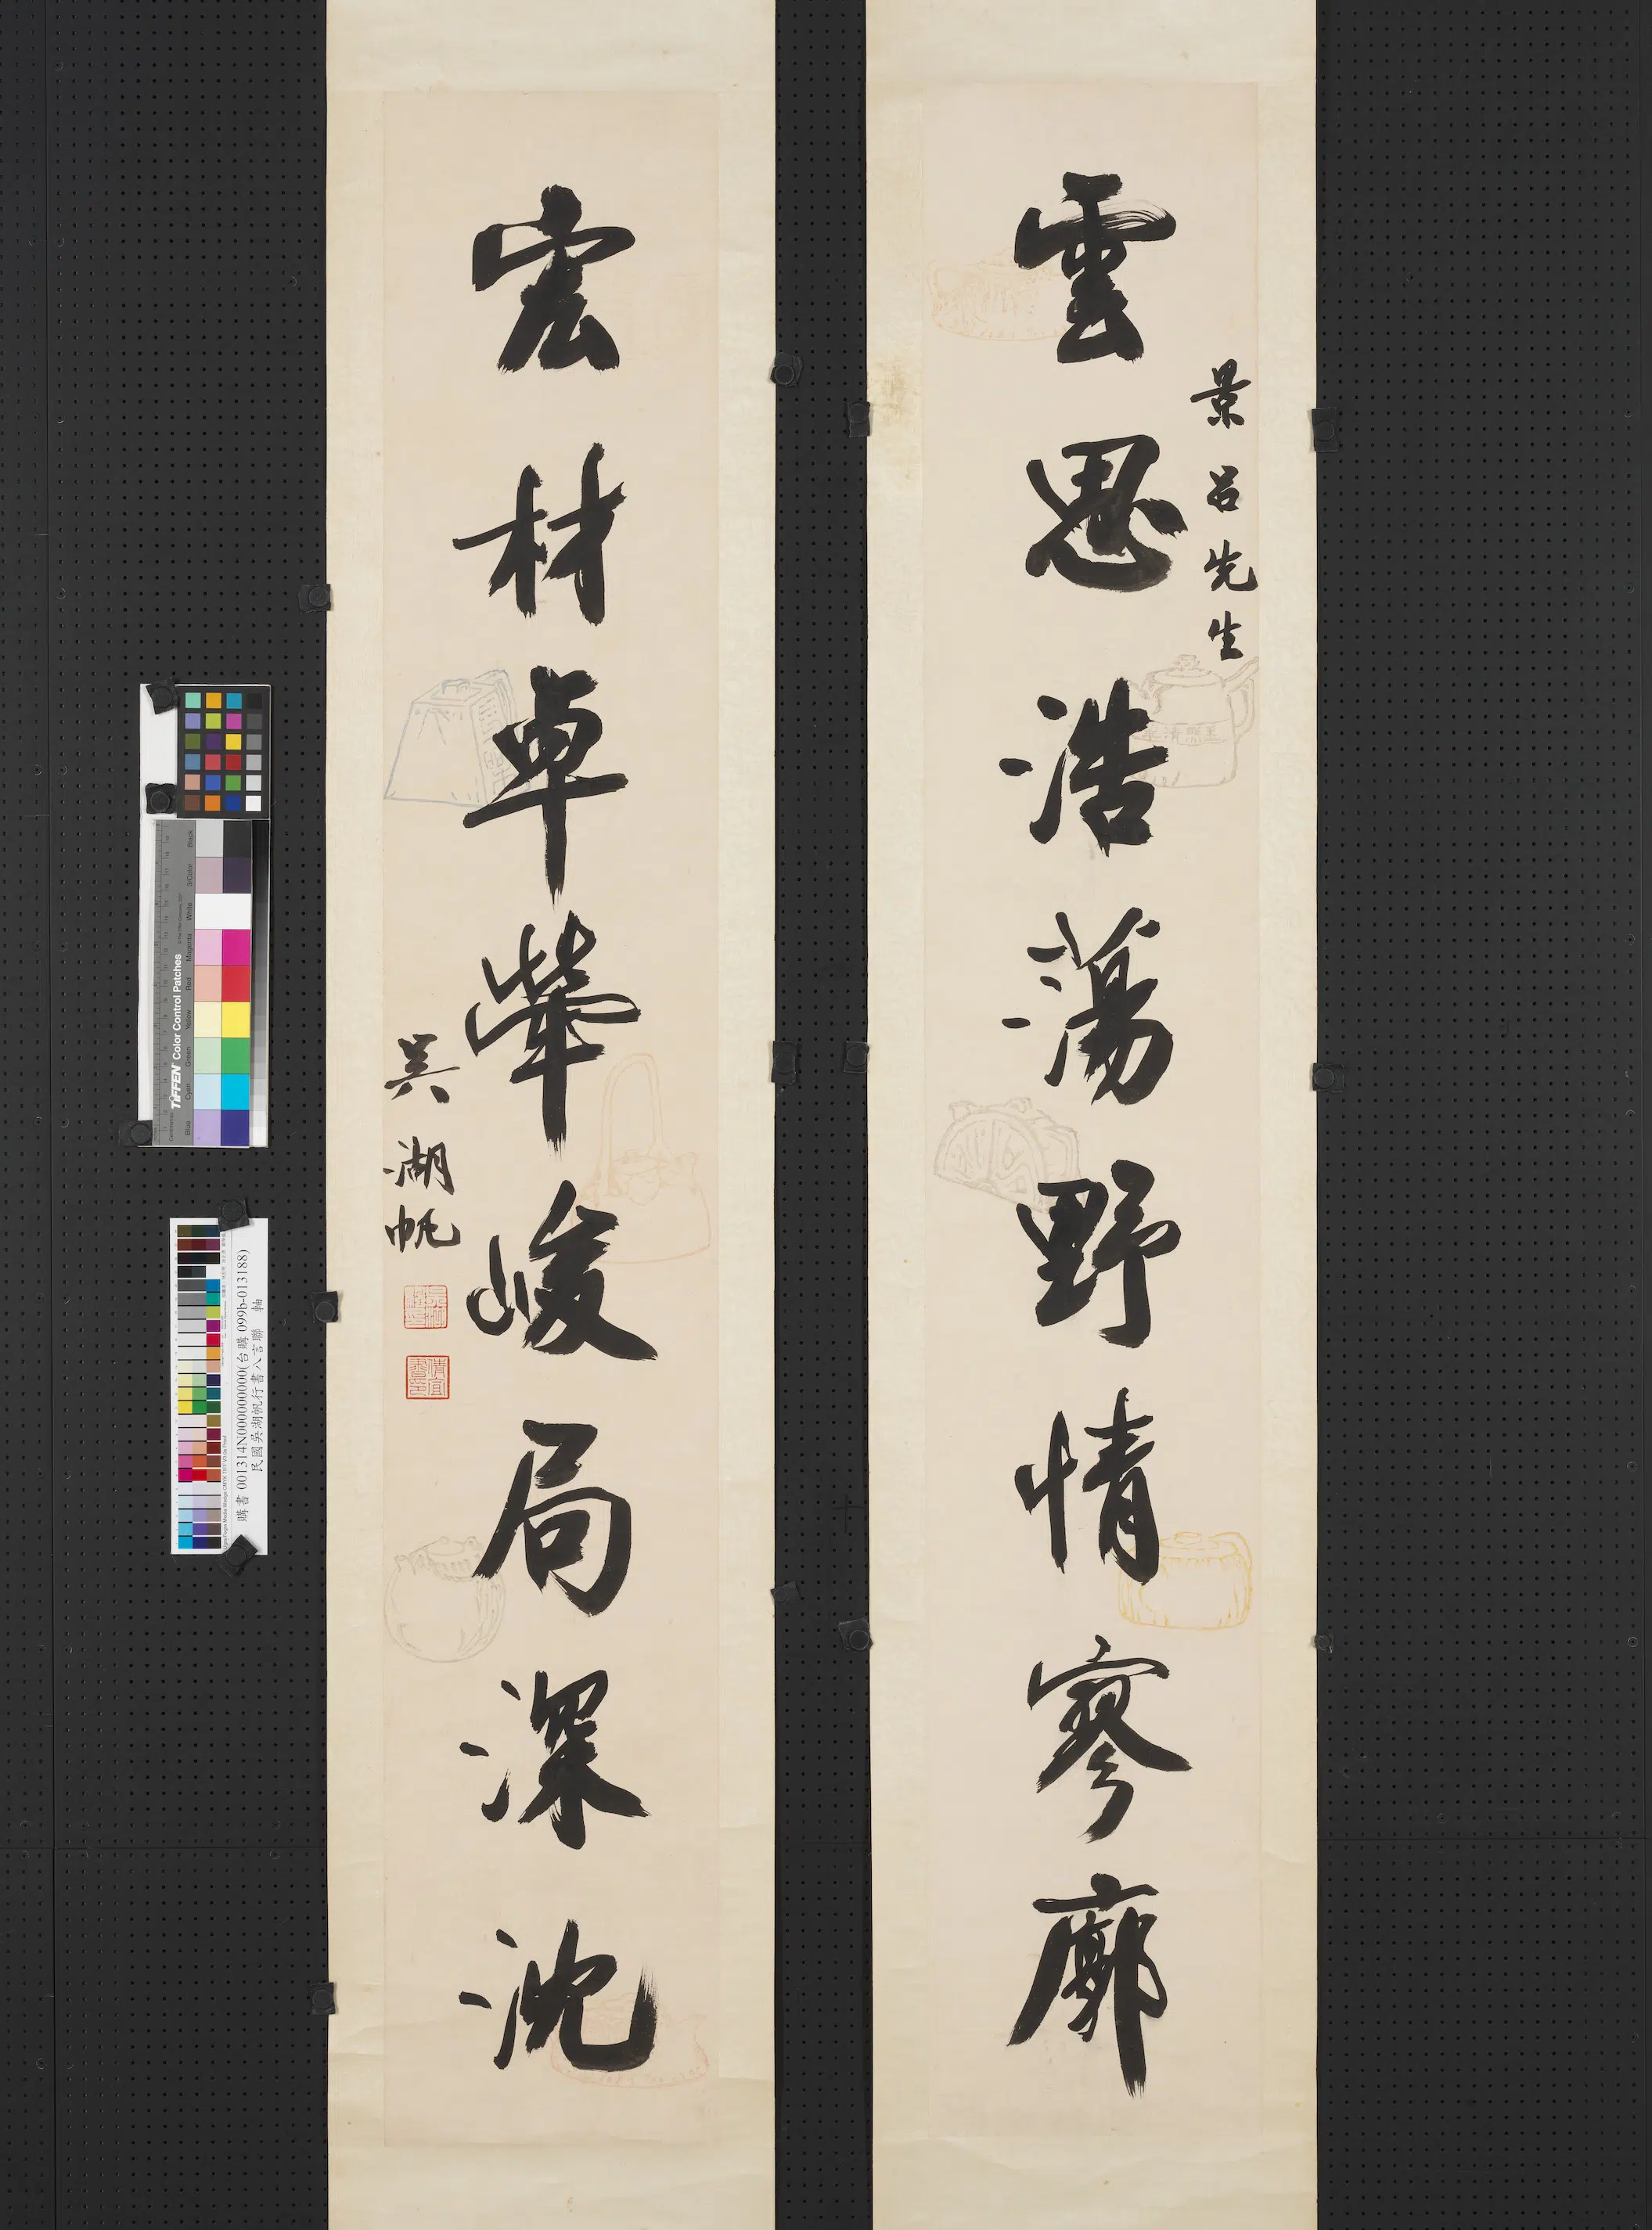 雲思浩蕩野情寥廓
景呂先生
宏材卓犖峻局深沈
吳湖帆
購書 001314N000000000(台購 099b-013188)
民國吳湖帆行書八言聯 軸
TIFFEN Color Control Patches
Blue Cyan Green Yellow Red Magenta White 3/Color Black